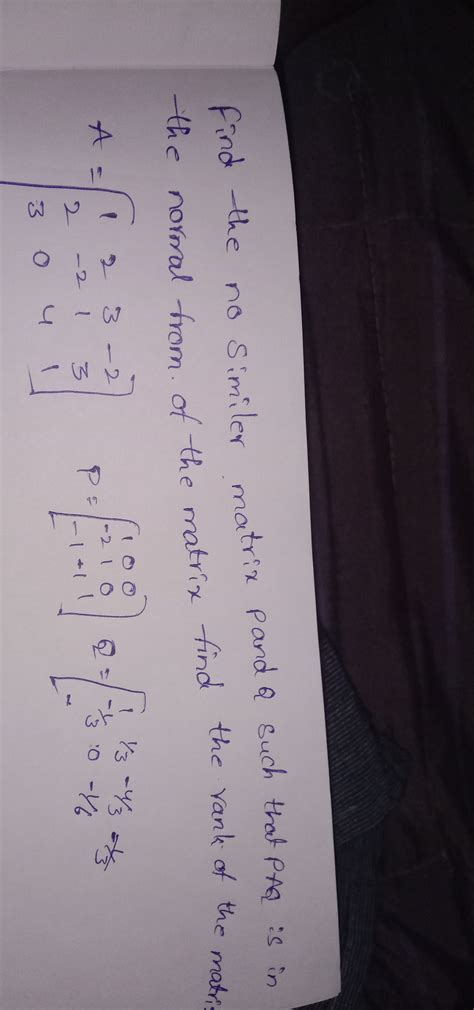 find the no similer matrix p and Q such that PAQ is in
the normal from. of the matrix find the rank of the matri
A = [ 1 2 3 -2
2 -2 1 3
3 0 4 1 ]
P = [ 1 0 0
-2 1 0
-1 +1 1 ]
Q = [ 1 1/3 -4/3 -1/3
-1/3 0 -1/6